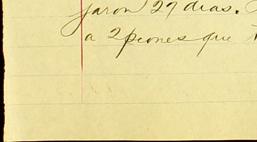 jaron 27 dias.
a 2 peones que